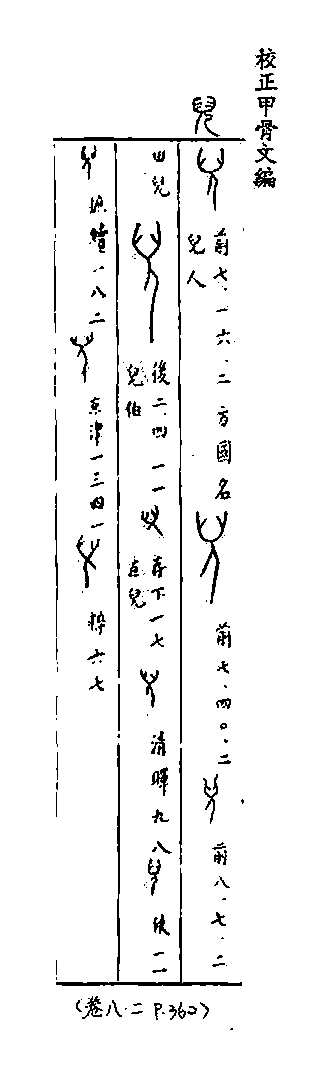 校正甲骨文編
兒
前七·一六·二 方國名 兒人 前七·四〇·二 前八·七·二
兒 後二·四·一一 兒伯 存下一七 兒 清暉九八 一一
一八二 京津一三四一 粹六七
(卷八·二 P.360)